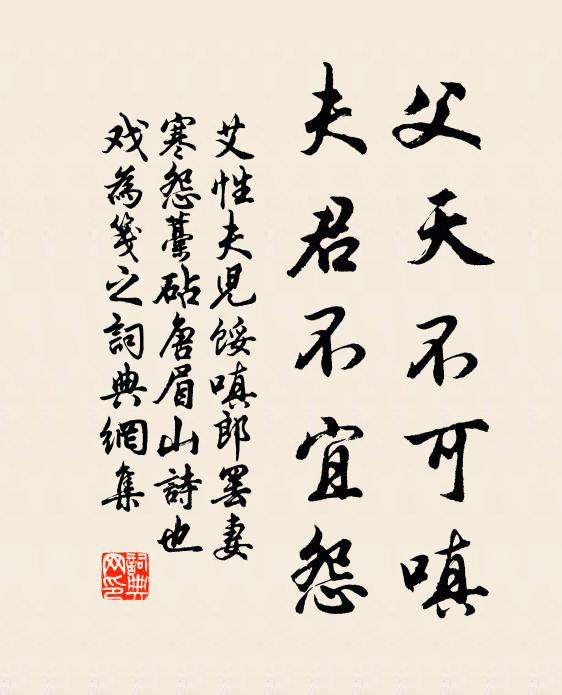 父天不可嗔
夫君不宜怨
艾性夫児餒嗔郎罷妻
寒怨藁砧唐眉山詩也
戏為箋之詞典網集
詞典
网印